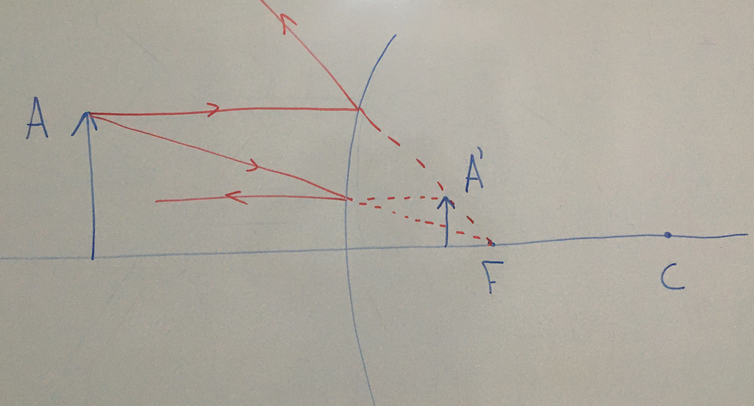 A
A'
F
C